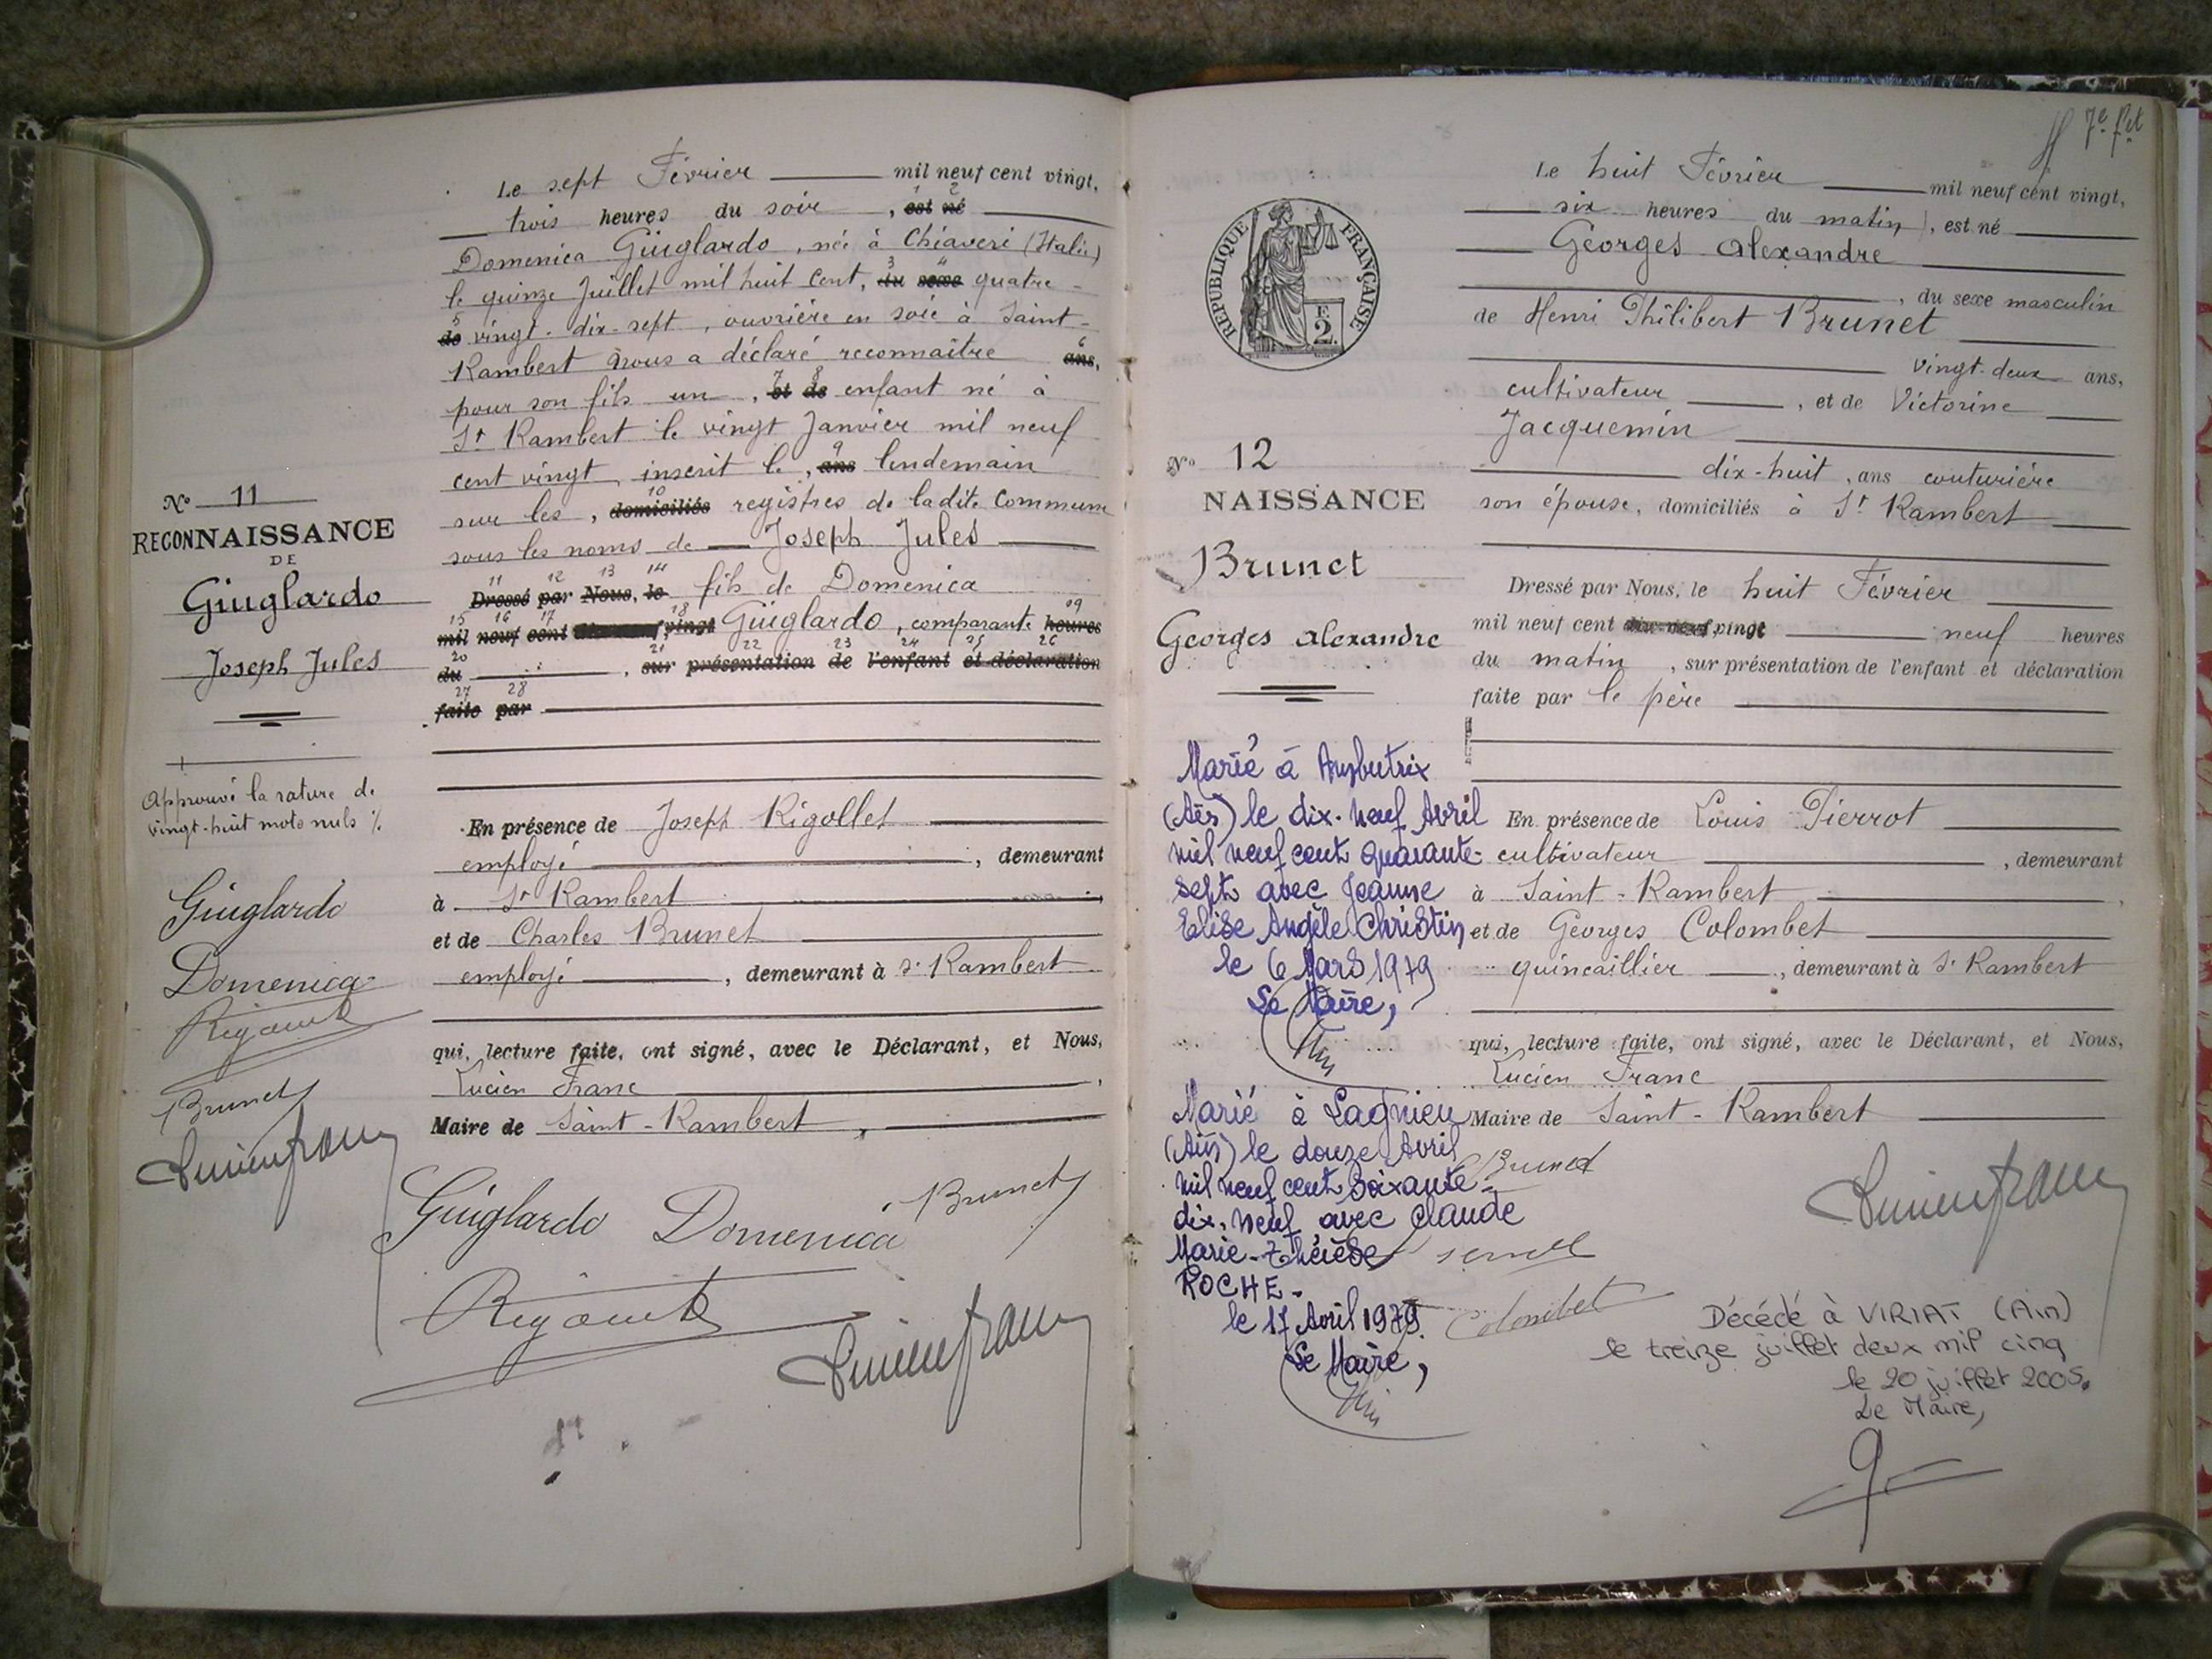 Le sept Février mil neuf cent vingt,
1 2
trois heures du soir , est né
Domenica Giuglardo, née à Chiaveri (Italie)
3 4
le quinze Juillet mil huit cent, du sexe quatre-
5
de vingt-dix-sept, ouvrière en soie à Saint-
6
Rambert nous a déclaré reconnaitre ans,
7 8
pour son fils un , et de enfant né à
St Rambert le vingt Janvier mil neuf
9
cent vingt, inscrit le, ans lendemain
10
sur les , domiciliés registres de ladite Commune
sous les noms de Joseph Jules
11 12 13 14
Dressé par Nous, le fils de Domenica
15 16 17 18 19
mil neuf cent vingt Giuglardo, comparante heures
20 21 22 23 24 25 26
du , sur présentation de l'enfant et déclaration
27 28
faite par
No 11
RECONNAISSANCE
DE
Giuglardo
Joseph Jules
Approuvé la rature de
vingt-huit mots nuls
Giuglardo
Domenica
Brunet
Lucien franc
En présence de Joseph Rigollet
employé , demeurant
à St Rambert
et de Charles Brunet
employé , demeurant à St Rambert
qui, lecture faite, ont signé, avec le Déclarant, et Nous,
Lucien Franc ,
Maire de Saint-Rambert ,
Giuglardo Domenica Brunet
Lucien franc
7e fet
REPUBLIQUE FRANÇAISE
E
2.
Le huit Février mil neuf cent vingt,
six heures du matin, est né
Georges Alexandre
, du sexe masculin
de Henri Philibert Brunet
vingt-deux ans,
cultivateur , et de Victorine
Jacquemin
dix-huit , ans couturière
son épouse, domiciliés à St Rambert
No 12
NAISSANCE
Brunet
Georges Alexandre
Dressé par Nous, le huit Février
mil neuf cent dix-neuf vingt neuf heures
du matin , sur présentation de l'enfant et déclaration
faite par le père
Marié à Ambutrix
(Ain) le dix-neuf Avril
mil neuf cent quarante-
sept avec Jeanne
Elise Angèle Christin
le 6 Mars 1979
Le Maire,
Marié à Lagnieu
(Ain) le douze Avril
mil neuf cent soixante-
dix-neuf avec Claude
Marie-Thérèse
ROCHE-
le 17 Avril 1979.
Le Maire,
En présence de Louis Pierrot
cultivateur , demeurant
à Saint-Rambert ,
et de Georges Colombet
quincaillier , demeurant à St Rambert
qui, lecture faite, ont signé, avec le Déclarant, et Nous,
Lucien Franc
Maire de Saint-Rambert
Brunet
Lucien franc
Colombet
Décédé à VIRIAT (Ain)
le treize juillet deux mil cinq
le 20 juillet 2005.
Le Maire,